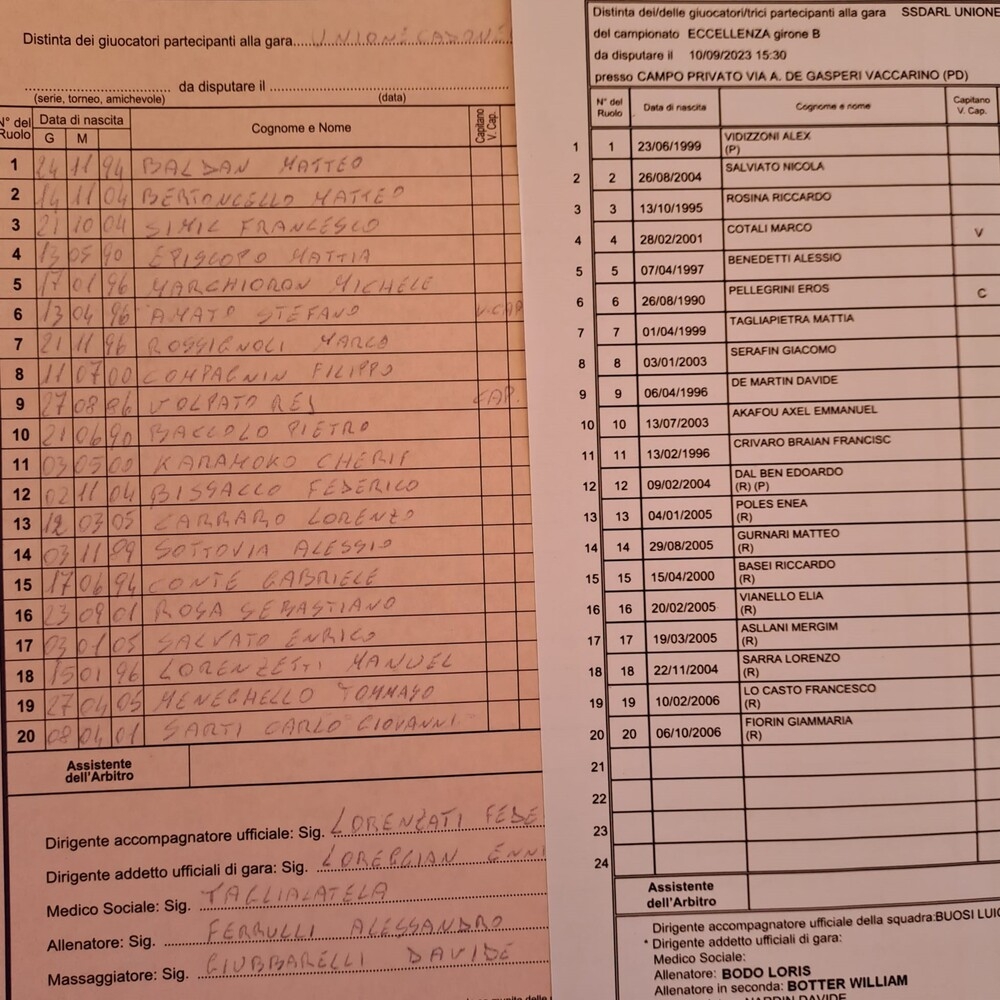 Distinta dei giuocatori partecipanti alla gara UNIONE CADONE
da disputare il
(serie, torneo, amichevole) (data)
N° del Ruolo Data di nascita G M Cognome e Nome Capitano V. Cap.
1 24 11 94 BALDAN MATTEO
2 14 11 04 BERTONCELLO MATTEO
3 21 10 04 SIMIC FRANCESCO
4 13 05 90 EPISCOPO MATTIA
5 17 01 96 MARCHIORON MICHELE
6 13 04 96 AMATO STEFANO V.CAP
7 21 11 96 ROSSIGNOLI MARCO
8 11 07 00 COMPAGNIN FILIPPO
9 27 08 96 VOLPATO CAP.
10 21 06 90 BACCOLO PIETRO
11 03 05 00 KARAMOKO CHERIF
12 02 11 04 BISSACCO FEDERICO
13 12 03 05 CARRARO LORENZO
14 03 11 89 SOTTOVIA ALESSIO
15 17 06 94 CONTE GABRIELE
16 23 09 01 ROSA SEBASTIANO
17 03 01 05 SALVATO ENRICO
18 15 01 96 LORENZETTI MANUEL
19 27 04 05 MENEGHELLO TOMMASO
20 08 04 01 SARTI CARLO GIOVANNI
Assistente
dell'Arbitro
Dirigente accompagnatore ufficiale: Sig. LORENZATI FEDE
Dirigente addetto ufficiali di gara: Sig. LOREGGIAN ENNI
Medico Sociale: Sig. TAGLIALATELA
Allenatore: Sig. FERRULLI ALESSANDRO
Massaggiatore: Sig. GIUBBARELLI DAVIDE
Distinta dei/delle giuocatori/trici partecipanti alla gara SSDARL UNIONE
del campionato ECCELLENZA girone B
da disputare il 10/09/2023 15:30
presso CAMPO PRIVATO VIA A. DE GASPERI VACCARINO (PD)
N° del Ruolo Data di nascita Cognome e nome Capitano V. Cap.
1 1 23/06/1999 VIDIZZONI ALEX
(P)
2 2 26/08/2004 SALVIATO NICOLA
3 3 13/10/1995 ROSINA RICCARDO
4 4 28/02/2001 COTALI MARCO V
5 5 07/04/1997 BENEDETTI ALESSIO
6 6 26/08/1990 PELLEGRINI EROS C
7 7 01/04/1999 TAGLIAPIETRA MATTIA
8 8 03/01/2003 SERAFIN GIACOMO
9 9 06/04/1996 DE MARTIN DAVIDE
10 10 13/07/2003 AKAFOU AXEL EMMANUEL
11 11 13/02/1996 CRIVARO BRAIAN FRANCISC
12 12 09/02/2004 DAL BEN EDOARDO
(R) (P)
13 13 04/01/2005 POLES ENEA
(R)
14 14 29/08/2005 GURNARI MATTEO
(R)
15 15 15/04/2000 BASEI RICCARDO
(R)
16 16 20/02/2005 VIANELLO ELIA
(R)
17 17 19/03/2005 ASLLANI MERGIM
(R)
18 18 22/11/2004 SARRA LORENZO
(R)
19 19 10/02/2006 LO CASTO FRANCESCO
(R)
20 20 06/10/2006 FIORIN GIAMMARIA
(R)
21
22
23
24
Assistente
dell'Arbitro
Dirigente accompagnatore ufficiale della squadra:BUOSI LUIG
* Dirigente addetto ufficiali di gara:
Medico Sociale:
Allenatore: BODO LORIS
Allenatore in seconda: BOTTER WILLIAM
NARDIN DAVIDE